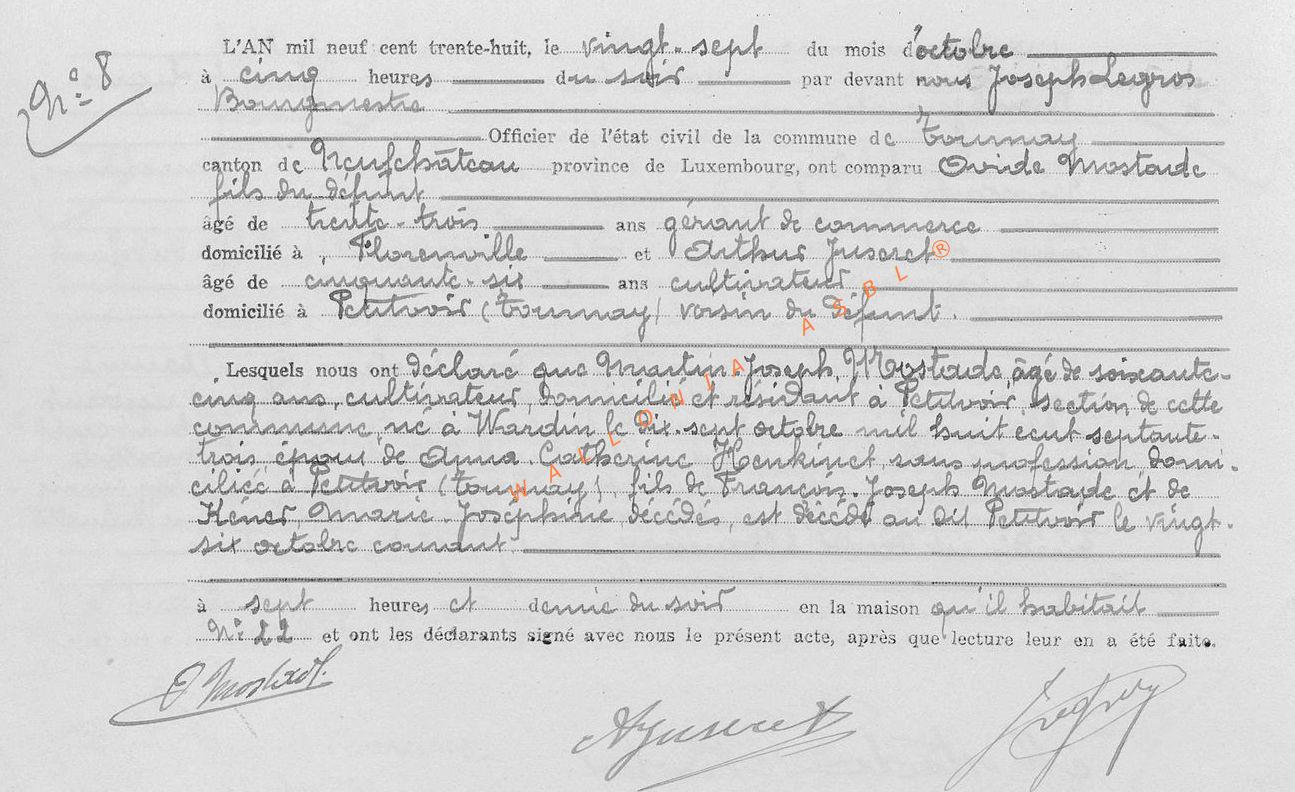 N° 8
L'AN mil neuf cent trente-huit, le vingt-sept du mois d'octobre
à cinq heures du soir par devant nous Joseph Legros
Bourgmestre
Officier de l'état civil de la commune de Tournay
canton de Neufchâteau province de Luxembourg, ont comparu Ovide Mostade
fils du défunt
âgé de trente-trois ans gérant de commerce
domicilié à Florenville et Arthur Juseret
âgé de cinquante-six ans cultivateur
domicilié à Petitvoir (Tournay) voisin du défunt.
Lesquels nous ont déclaré que Martin-Joseph, Mostade, âgé de soixante-
cinq ans, cultivateur, domicilié et résidant à Petitvoir, section de cette
commune, né à Wardin le dix-sept octobre mil huit cent septante-
trois époux de Anna-Catherine Henkinet, sans profession, domi-
ciliée à Petitvoir (Tournay), fils de François-Joseph Mostade et de
Kéner, Marie-Joséphine, décédés, est décédé au dit Petitvoir le vingt-
six octobre courant
à sept heures et demie du soir en la maison qu'il habitait
N° 22 et ont les déclarants signé avec nous le présent acte, après que lecture leur en a été faite.
O Mostade.
A Juseret
WALLONIA ASBL ®